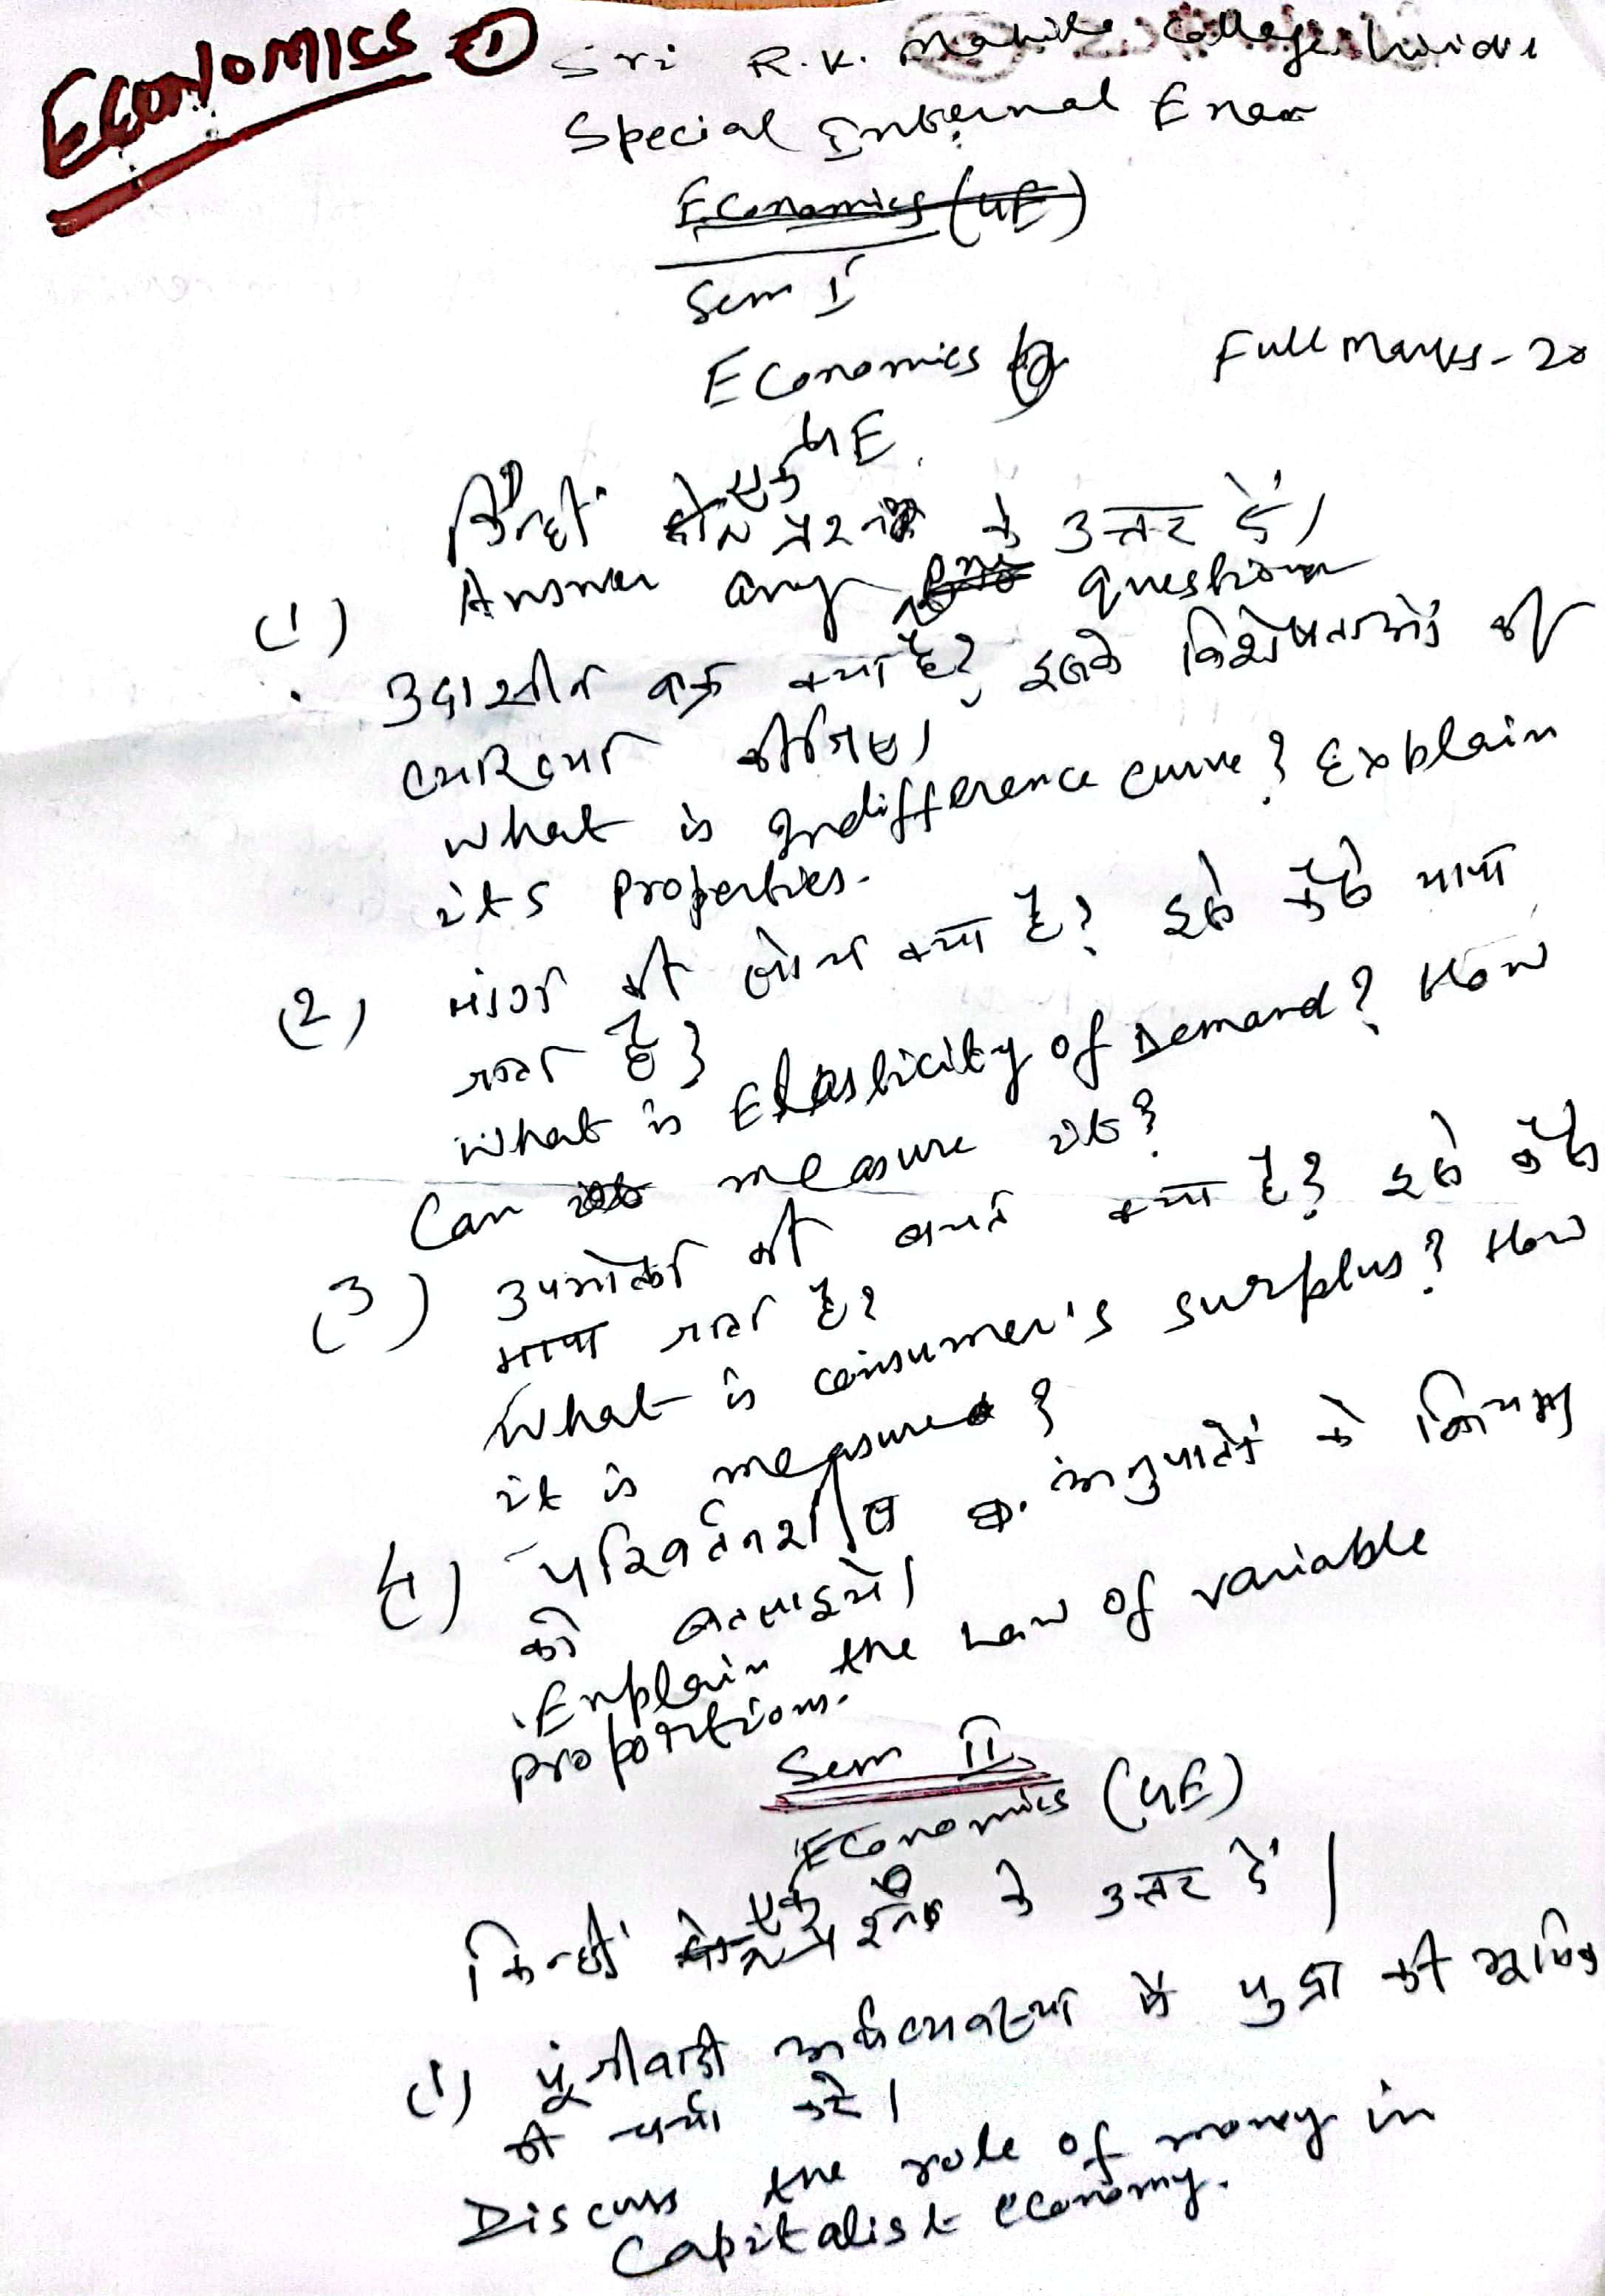 Economics ①
Sri R.K. Mahila College Giridih
Special Internal Exam
Economics (GE)
Sem I
Economics Full Marks - 20
GE
किन्हीं एक प्रश्न के उत्तर दें।
Answer any question
(1) उदासीन वक्र क्या है? इसके विशेषताओं की
व्याख्या कीजिए।
What is Indifference curve? Explain
its properties.
(2) मांग की लोच क्या है? इसे कैसे मापा
जाता है?
What is Elasticity of Demand? How
can measure it?
(3) उपभोक्ता की बचत क्या है? इसे कैसे
मापा जाता है?
What is consumer's surplus? How
it is measured?
4) परिवर्तनशील अनुपातों के नियम
को बतलाइये।
Explain the Law of variable
proportions.
Sem II
Economics (GE)
किन्हीं एक प्रश्न के उत्तर दें।
(1) पूंजीवादी अर्थव्यवस्था में मुद्रा की भूमिका
की चर्चा करें।
Discuss the role of money in
Capitalist economy.